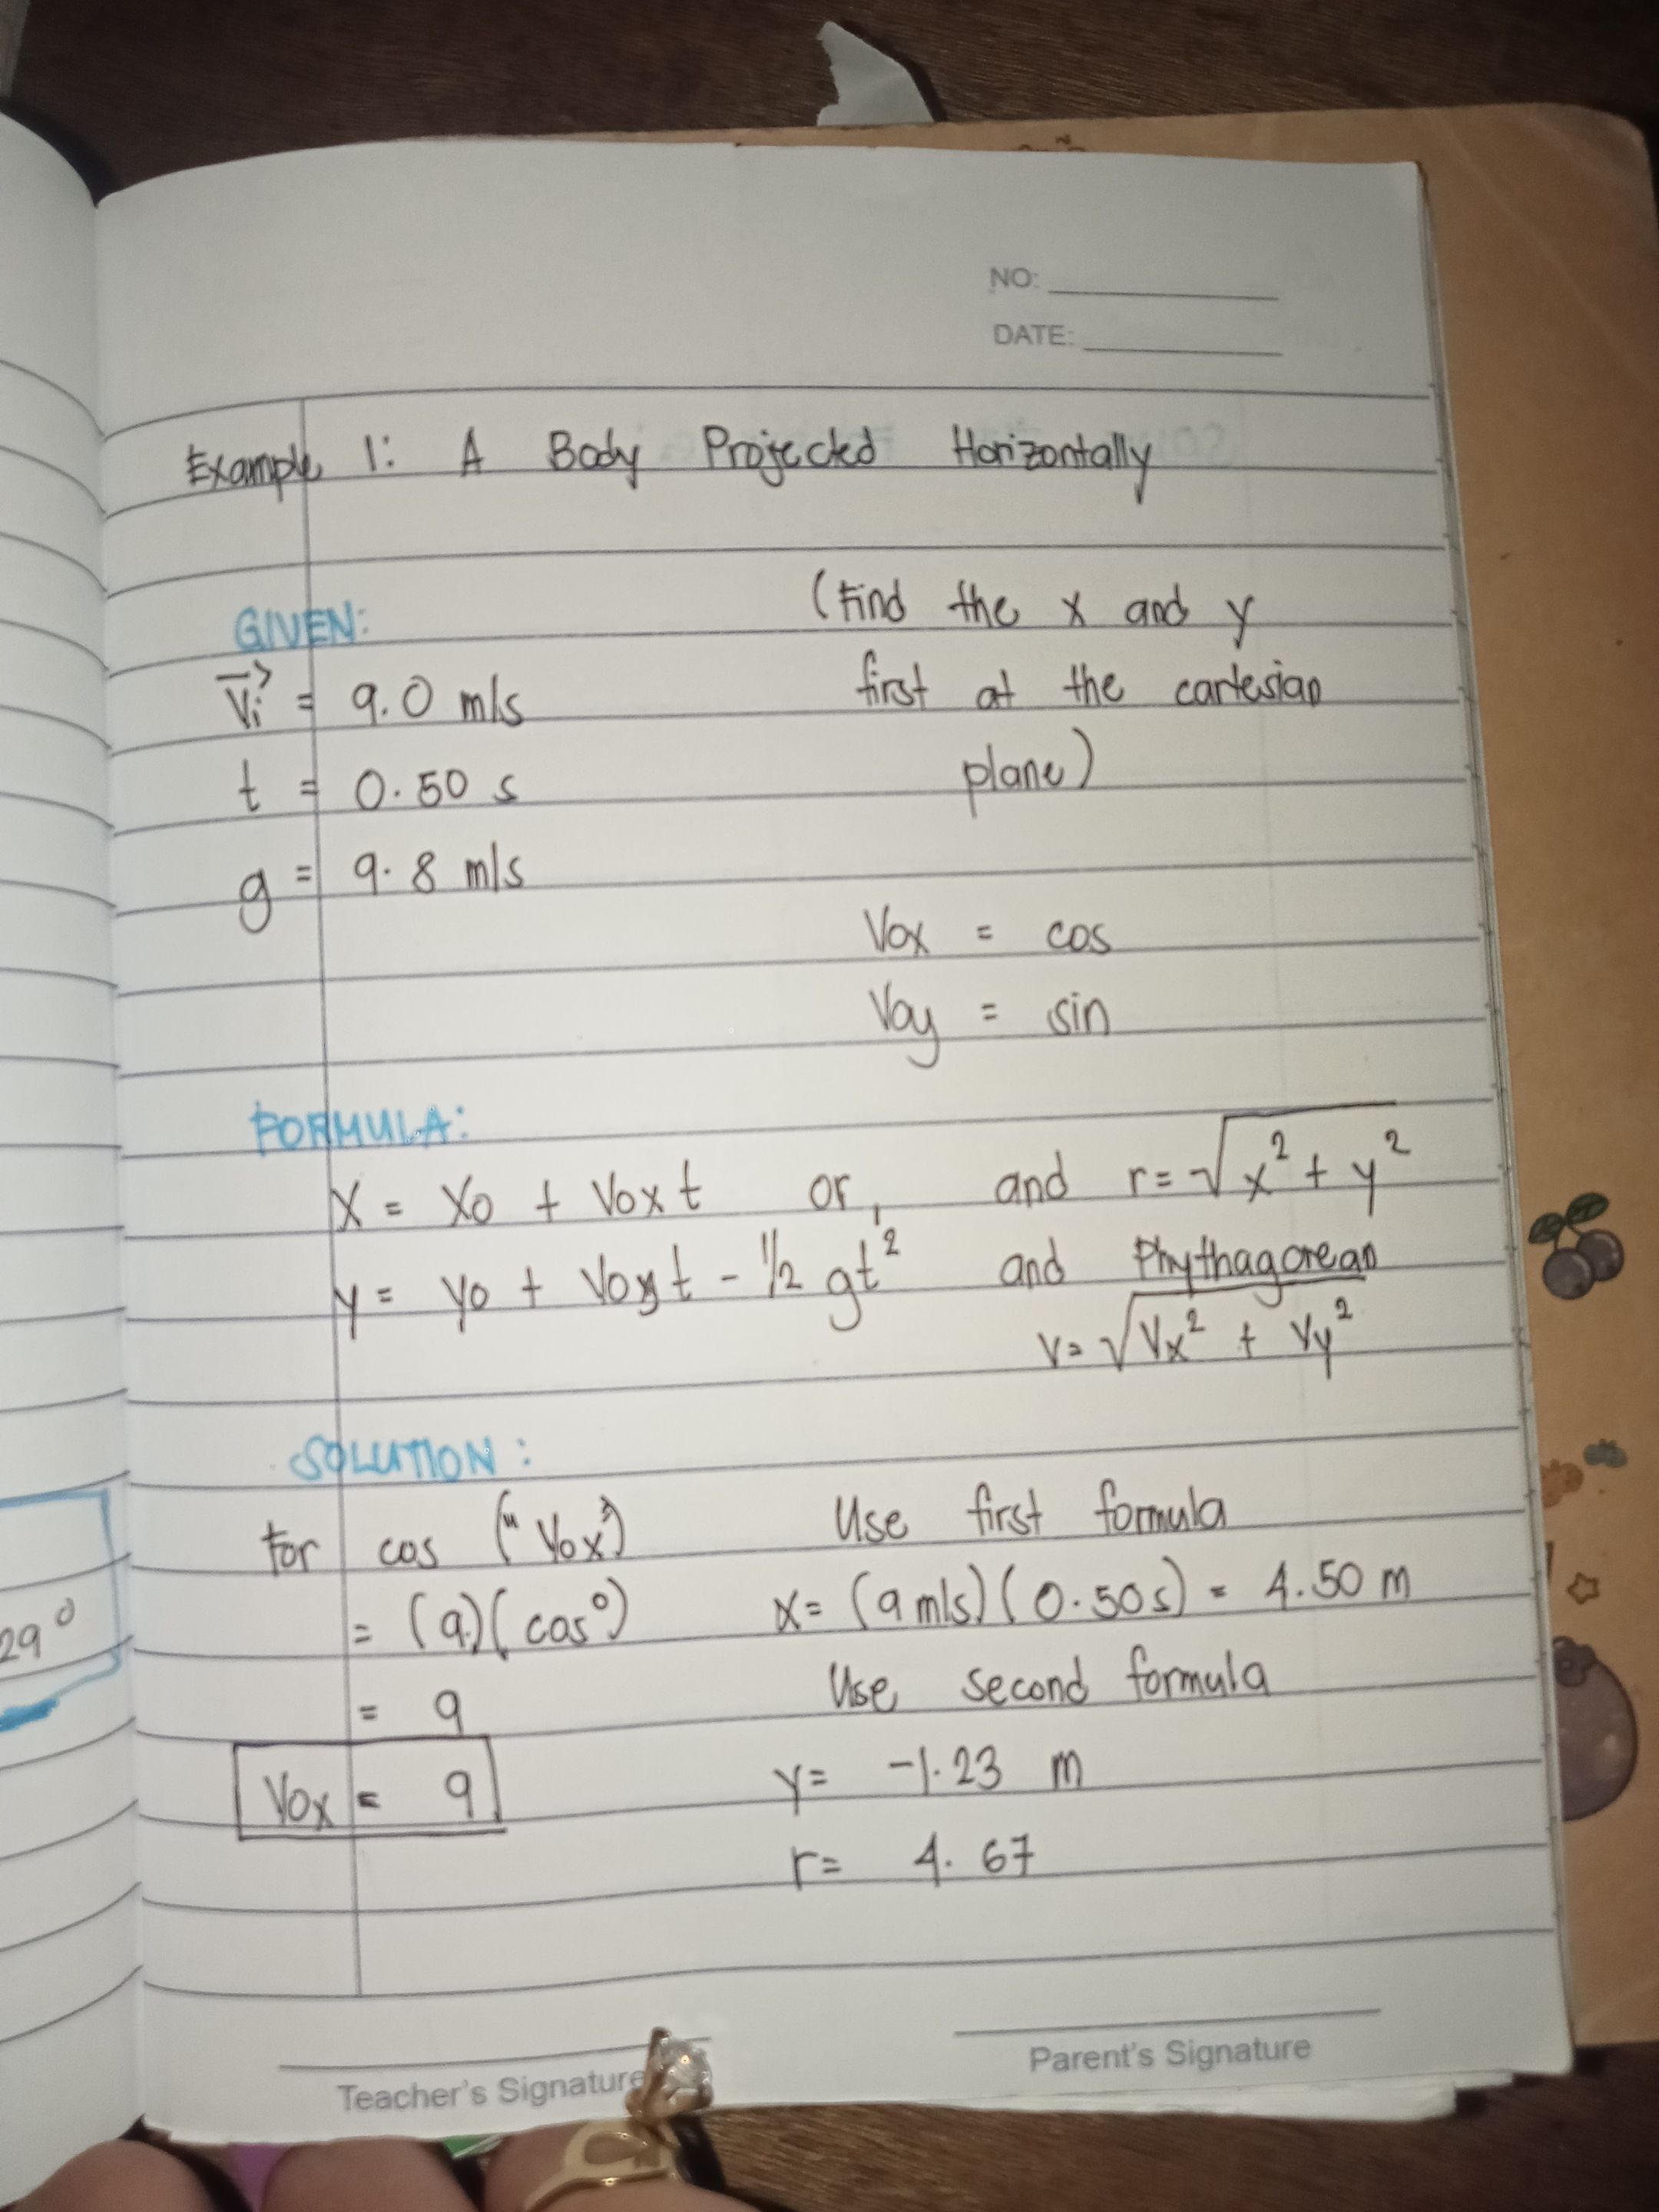 NO:
DATE:
Example 1: A Body Projected Horizontally
GIVEN:
Vi = 9.0 m/s
t = 0.50 s
g = 9.8 m/s
(Find the x and y
first at the cartesian
plane)
Vox = cos
Voy = sin
FORMULA:
X = Xo + Voxt or, and r = √x² + y²
y = yo + Voyt - 1/2 gt² and Phythagorean
v = √Vx² + Vy²
SOLUTION:
For cos ("Vox")
= (9)(cos°)
= 9
Vox = 9
Use first formula
x = (9m/s)(0.50s) = 4.50 m
Use second formula
y = -1.23 m
r = 4.67
29°
Teacher's Signature
Parent's Signature